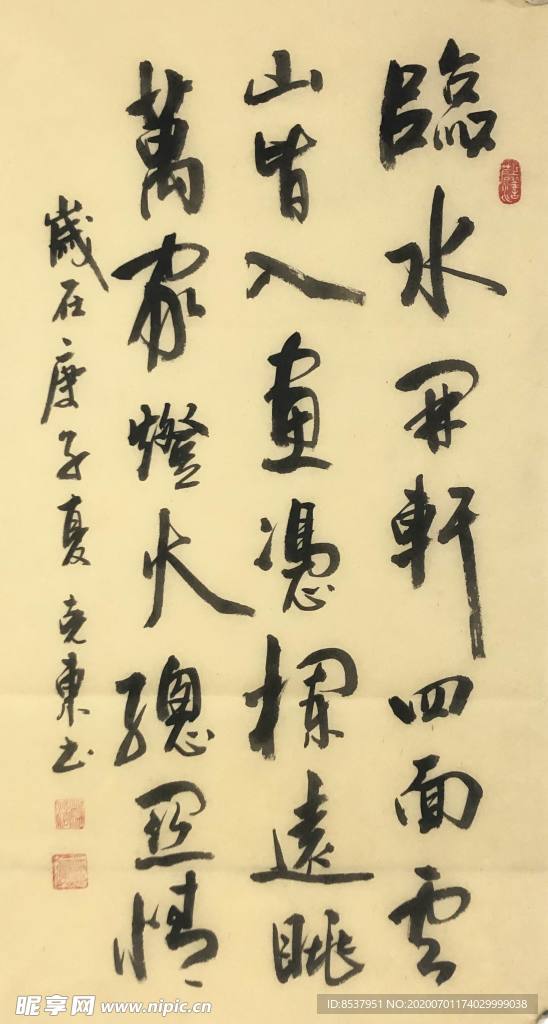 臨水開軒四面雲
山皆入畫憑欄遠眺
萬家燈火總關情
歲在庚子夏克東书
昵享网 www.nipic.cn
ID:8537951 NO:20200701174029999038